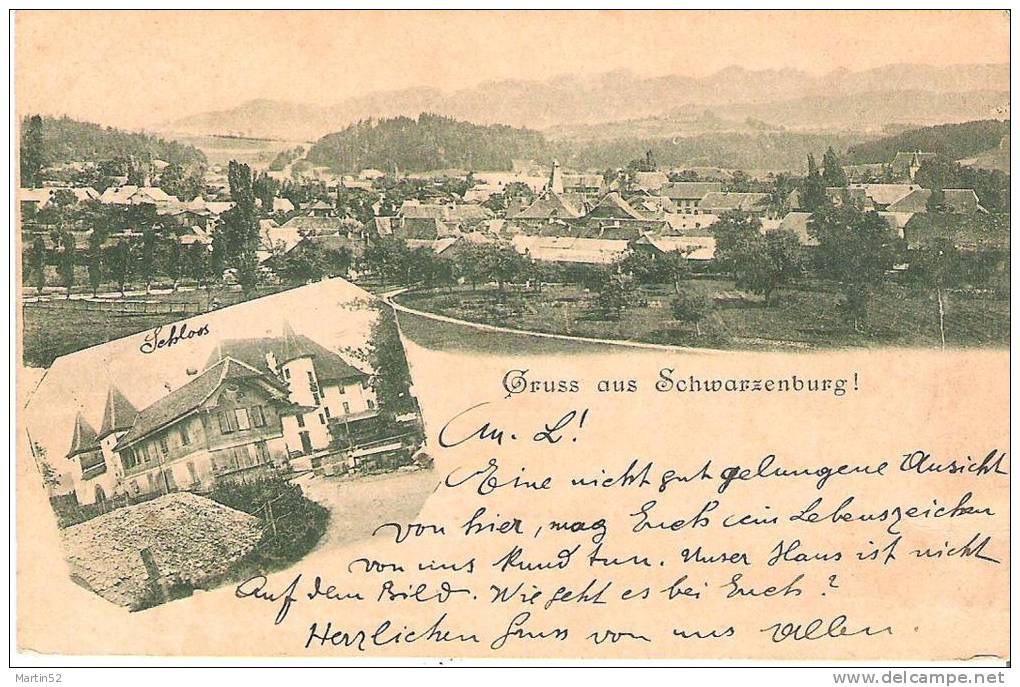 Schloss
Gruss aus Schwarzenburg!
An. L!
Eine nicht gut gelungene Ansicht
von hier, mag Euch ein Lebenszeichen
von uns Kund tun. Unser Haus ist nicht
Auf dem Bild. Wie geht es bei Euch?
Herzlichen Gruss von uns Allen.
Martin52
delcampe.net